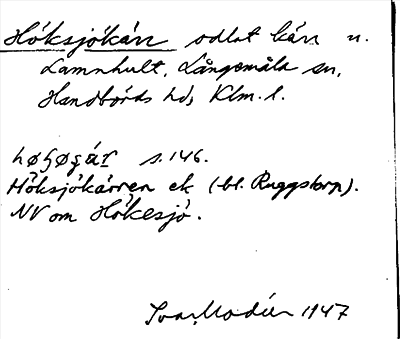 Höksjökärr odlat kärr n.
Lamnhult, Långemåla sn,
Handbörds hd, Klm. l.
s. 146.
Höksjökärren ek (bl. Ruggstorp).
NV om Hökesjö.
Ivar Modéer 1947